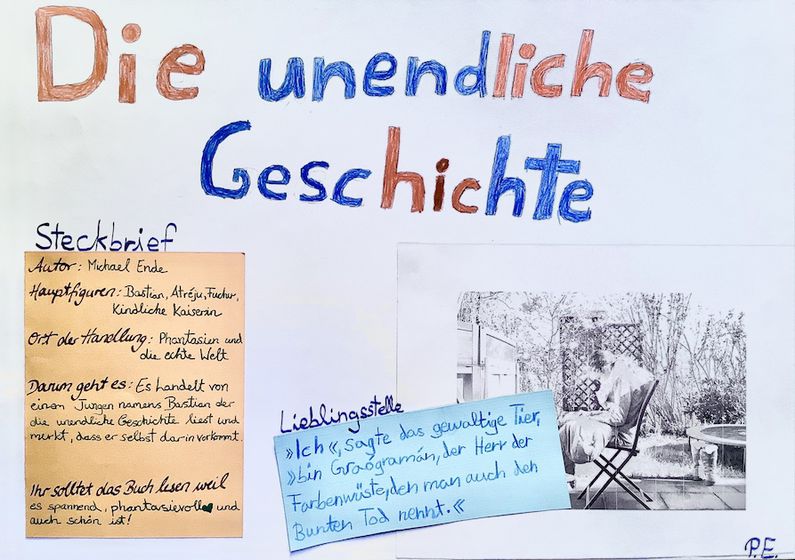 Die unendliche
Geschichte
Steckbrief
Autor: Michael Ende
Hauptfiguren: Bastian, Atréju, Fuchur,
Kindliche Kaiserin
Ort der Handlung: Phantasien und
die echte Welt
Darum geht es: Es handelt von
einem Jungen namens Bastian der
die unendliche Geschichte liest und
merkt, dass er selbst darin vorkommt.
Ihr solltet das Buch lesen weil
es spannend, phantasievoll und
auch schön ist!
Lieblingsstelle
»Ich«, sagte das gewaltige Tier,
»bin Graógramán, der Herr der
Farbenwüste, den man auch den
Bunten Tod nennt.«
P.E.